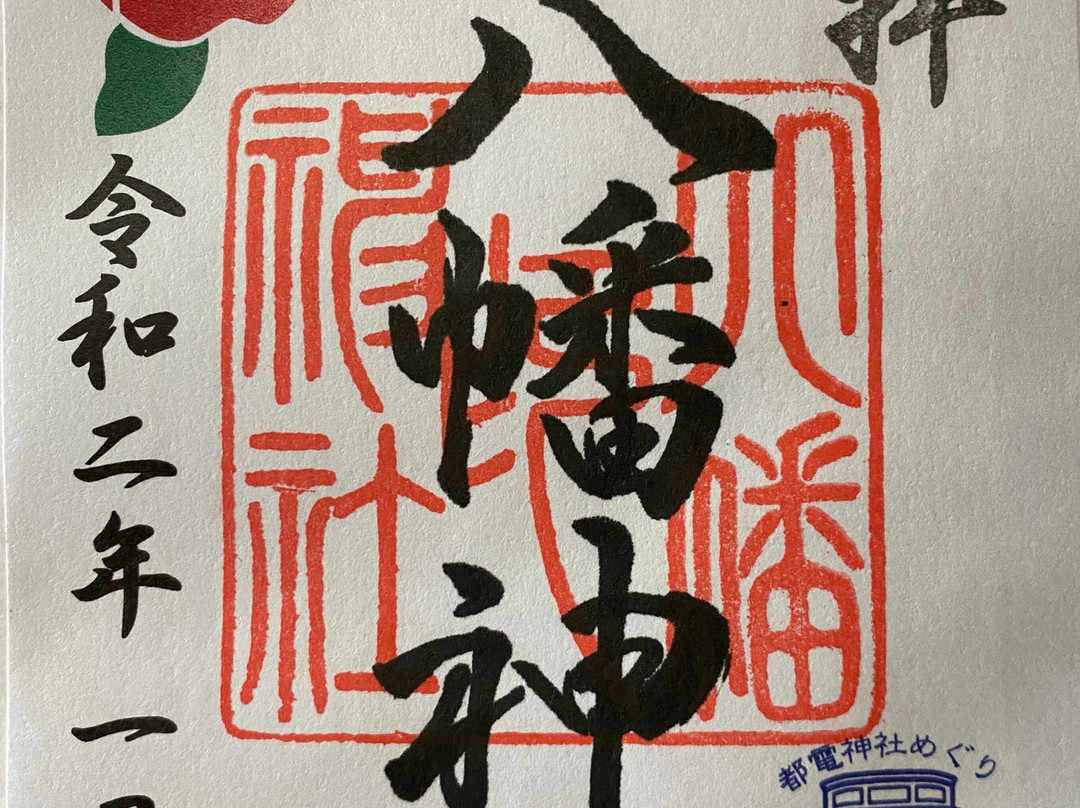 拝
八幡神
令和二年 一
都電神社めぐり